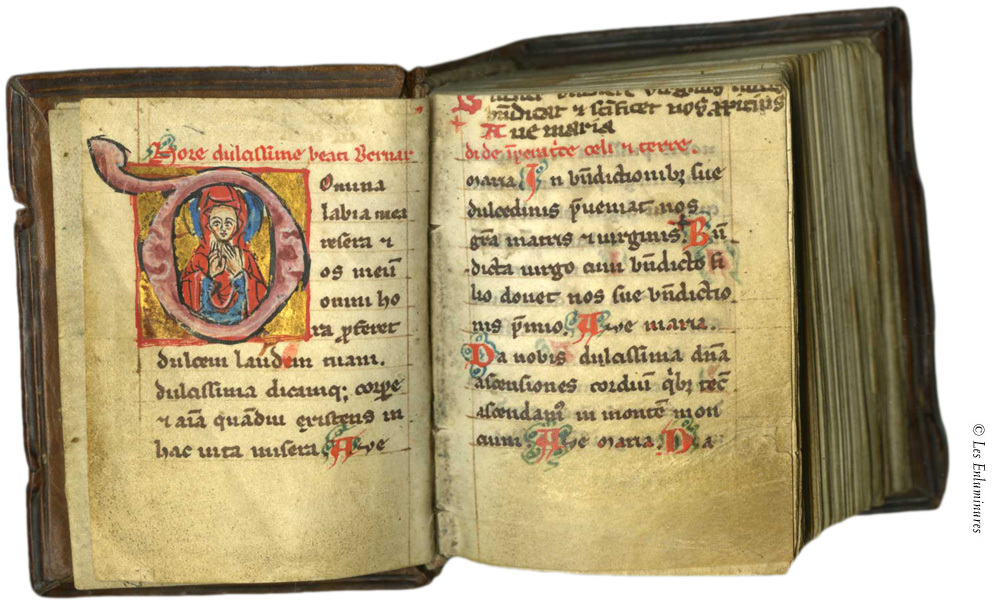 Hore dulcissime beati Bernar
Domina
labia mea
resera ⁊
os meū
omni ho
ra ꝓferet
dulcem laudem tuam.
dulcissima dicamq; corpe
⁊ aīa quādiu existens in
hac uita misera. Aue
būdicat ⁊ scīficet nos
Aue maria
celi ⁊ terre.
maria. In būdictionibꝫ sue
dulcedinis p̄ueniat nos
gr̄a matris ⁊ uirginis. Bn̄
dicta uirgo cum būdicto fi
lio donet nos sue būdictio
nis p̄mio. Aue maria.
Da nobis dulcissima dn̄a
ascensiones cordiū
ascendam in montē mon
tium. Aue maria. Da
© Les Enluminures